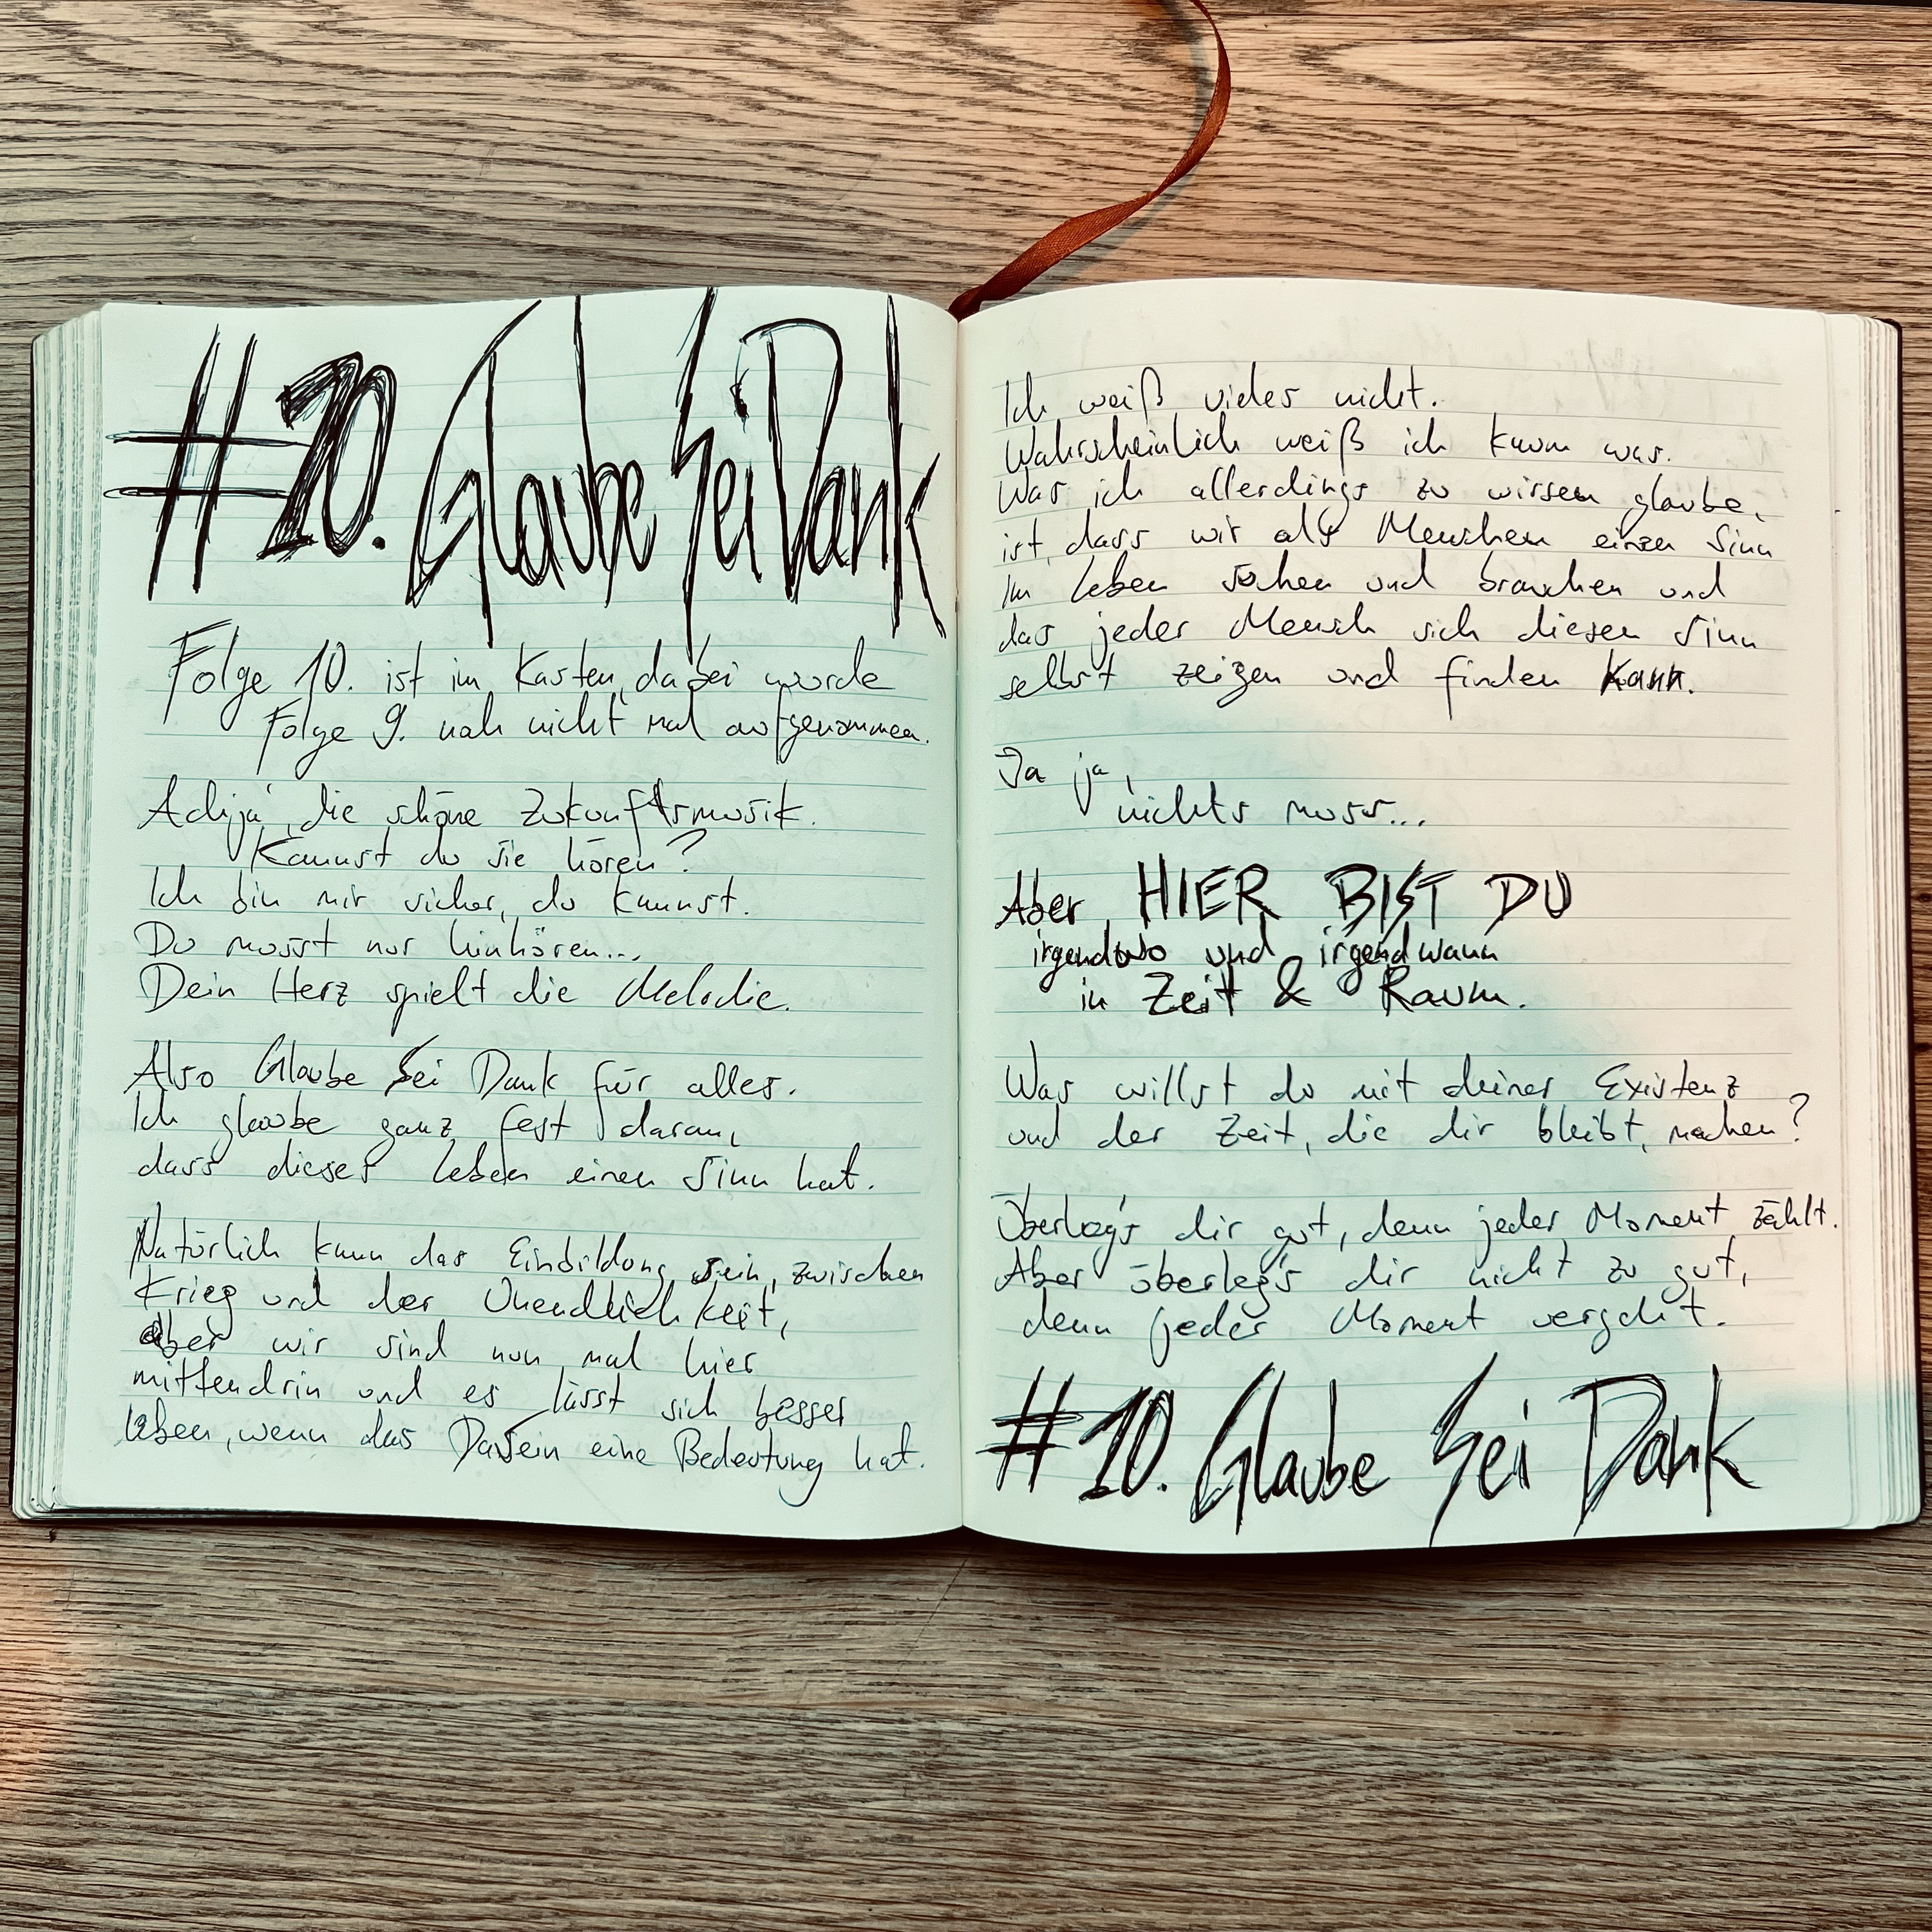 #10. Glaube Sei Dank
Folge 10. ist im Kasten, dabei wurde
Folge 9. noch nicht mal aufgenommen.
Achja, die schöne Zukunftsmusik.
Kannst du sie hören?
Ich bin mir sicher, du kannst.
Du musst nur hinhören...
Dein Herz spielt die Melodie.
Also Glaube Sei Dank für alles.
Ich glaube ganz fest daran,
dass dieses Leben einen Sinn hat.
Natürlich kann das Einbildung sein, zwischen
Krieg und der Unendlichkeit,
aber wir sind nun mal hier
mittendrin und es lässt sich besser
leben, wenn das Dasein eine Bedeutung hat.
Ich weiß vieles nicht.
Wahrscheinlich weiß ich kaum was.
Was ich allerdings zu wissen glaube,
ist, dass wir als Menschen einen Sinn
im Leben suchen und brauchen und
das jeder Mensch sich diesen Sinn
selbst zeigen und finden kann.
Ja ja,
nichts muss...
Aber HIER BIST DU
irgendwo und irgendwann
in Zeit & Raum.
Was willst du mit deiner Existenz
und der Zeit, die dir bleibt, machen?
Überleg's dir gut, denn jeder Moment zählt.
Aber überleg's dir nicht zu gut,
denn jeder Moment vergeht.
#10. Glaube Sei Dank